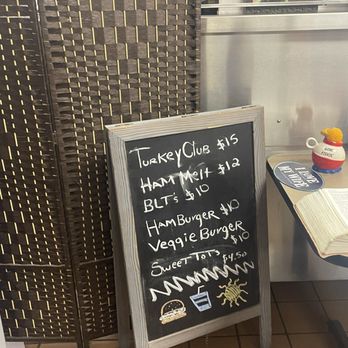 Turkey Club $15
Ham Melt $12
BLTs $10
HamBurger $10
Veggie Burger
$10
Sweet Tots $4.50